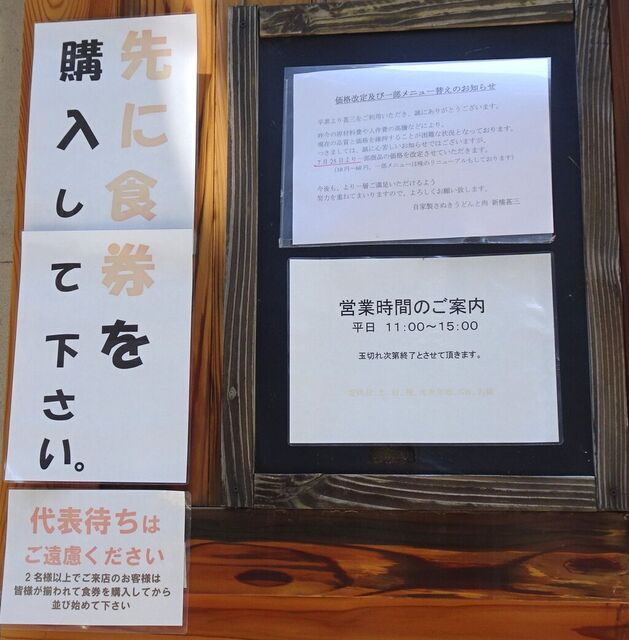 先に食券を
購入して下さい。
代表待ちは
ご遠慮ください
2名様以上でご来店のお客様は
皆様が揃われて食券を購入してから
並び始めて下さい
価格改定及び一部メニュー替えのお知らせ
平素より甚三をご利用いただき、誠にありがとうございます。
昨今の原材料費や人件費の高騰などにより、
現在の品質と価格を維持することが困難な状況となっております。
つきましては、誠に心苦しいお知らせではございますが、
7月28日より一部商品の価格を改定させていただきます。
今後も、より一層ご満足いただけるよう
努力を重ねてまいりますので、よろしくお願い致します。
自家製さぬきうどんと肉 新橋甚三
営業時間のご案内
平日 11:00～15:00
玉切れ次第終了とさせて頂きます。